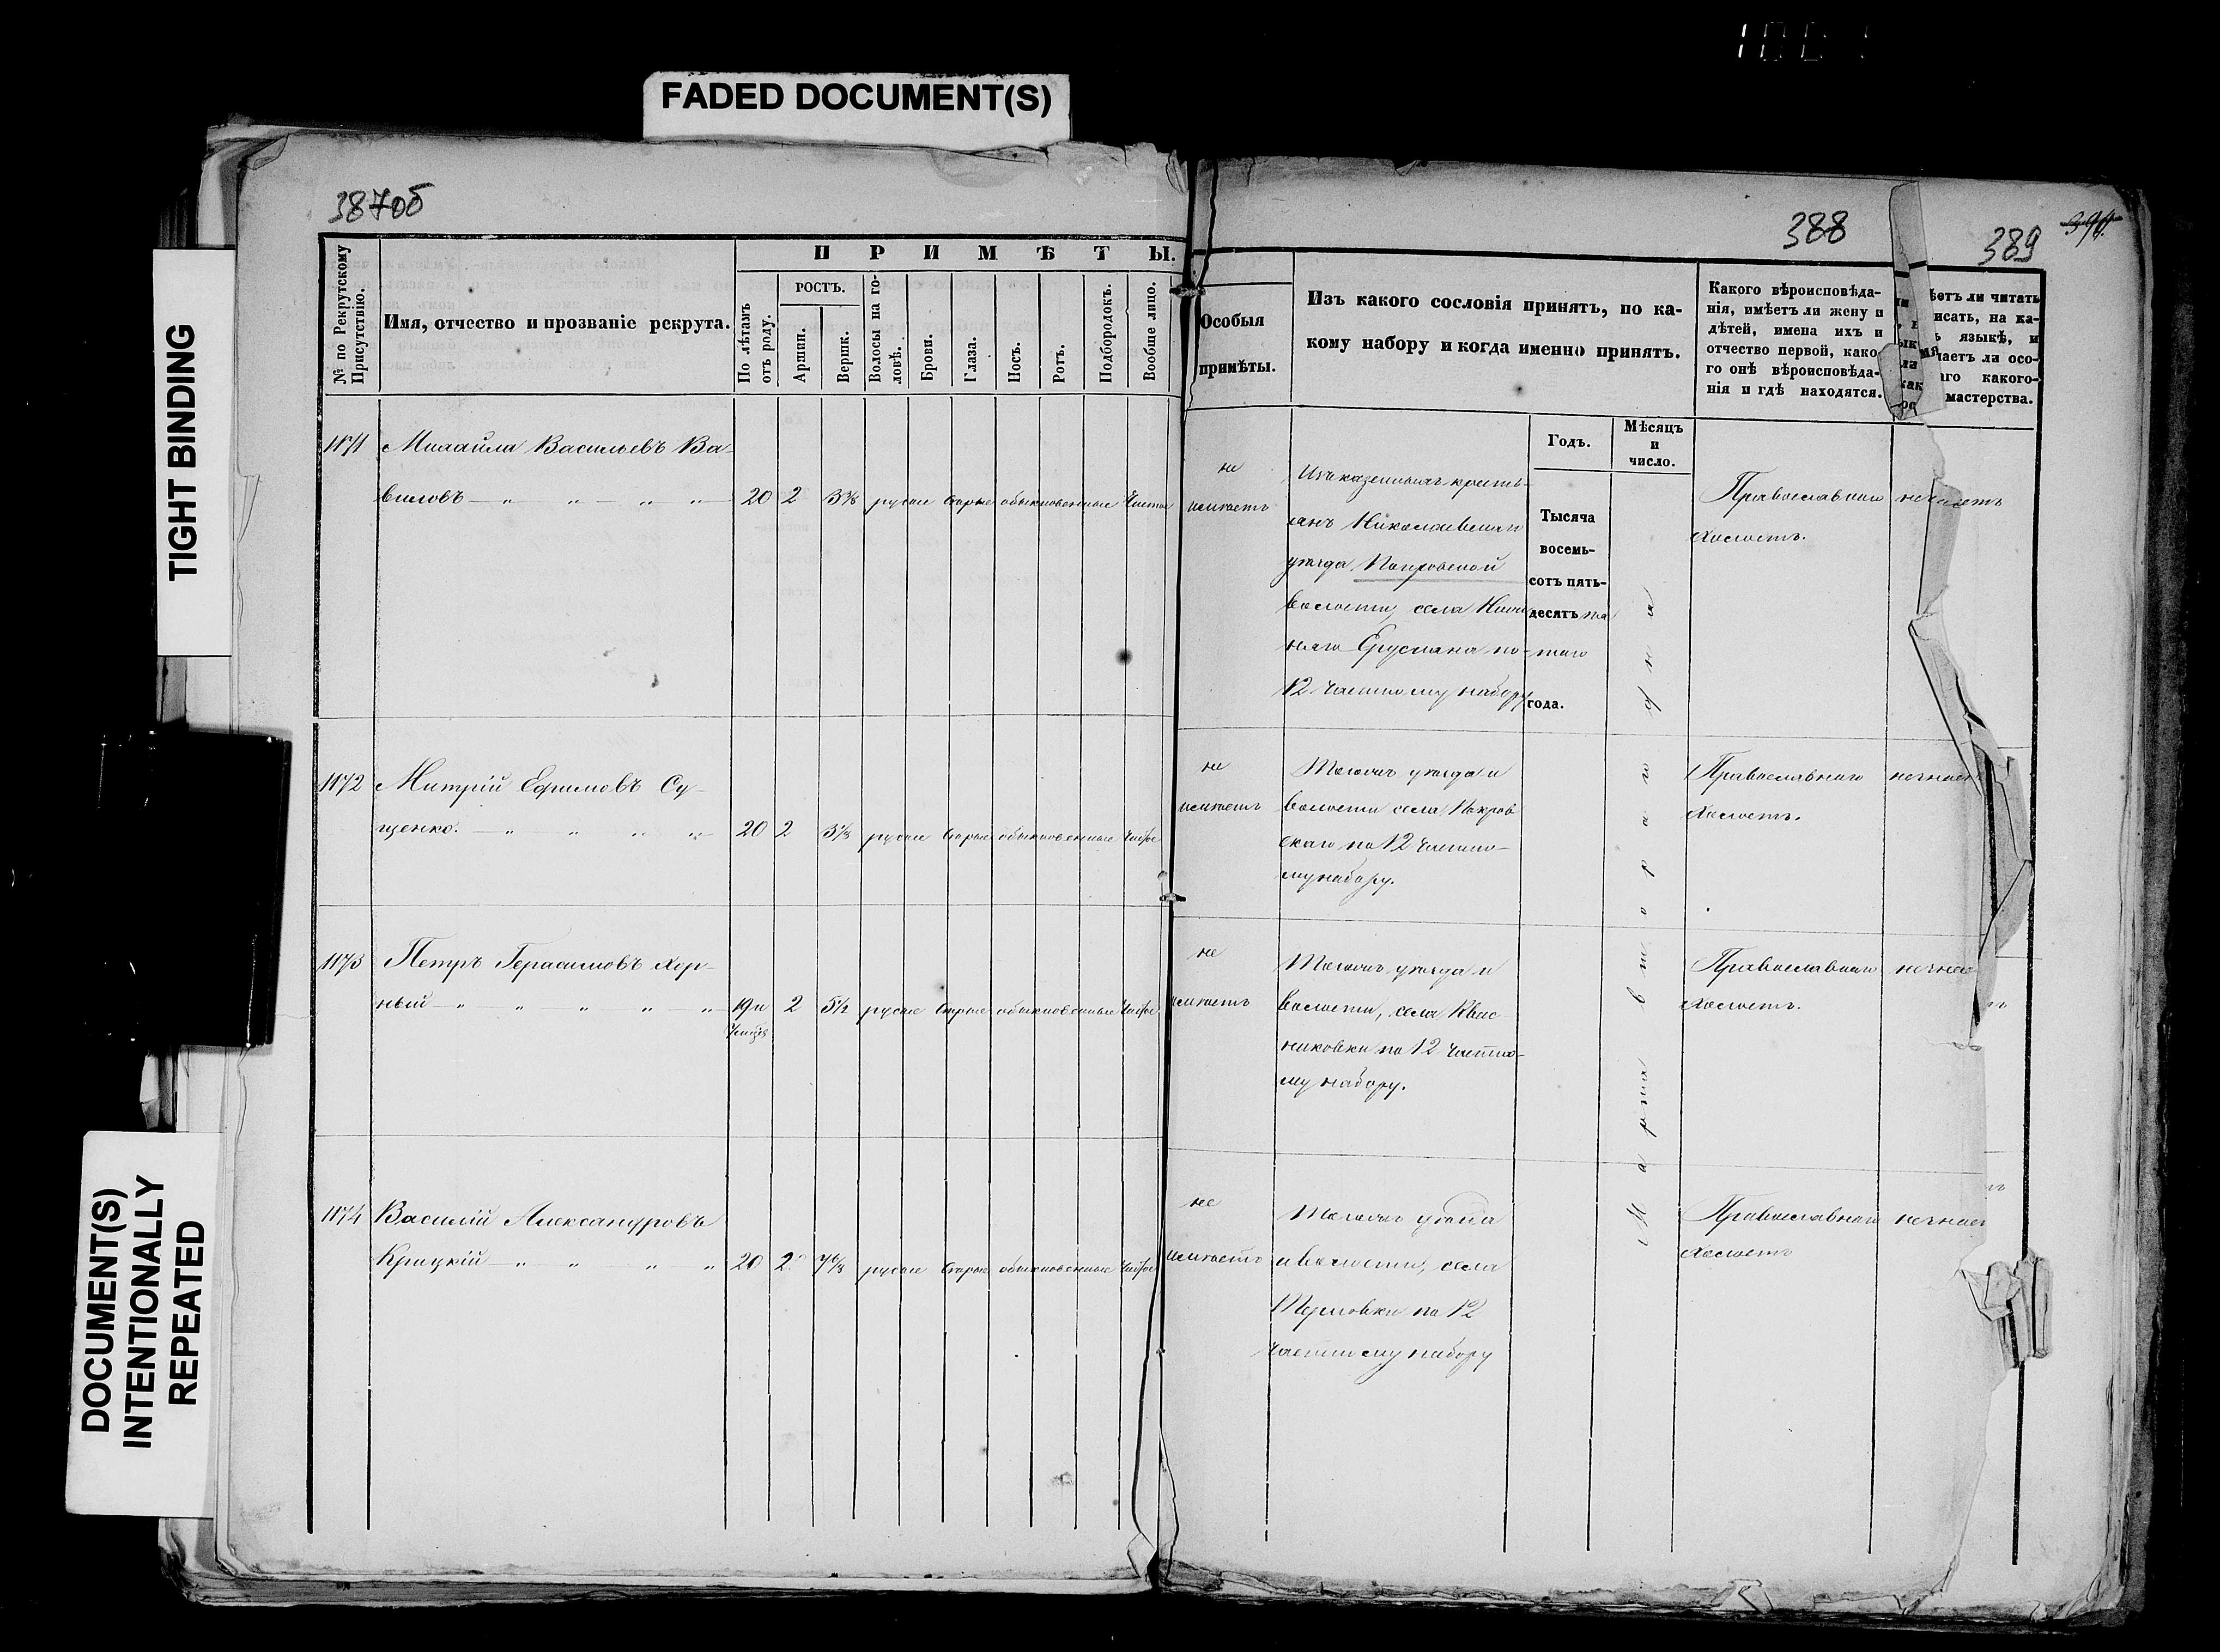 FADED DOCUMENT(S)
TIGHT BINDING
DOCUMENT(S)
INTENTIONALLY
REPEATED
387об
388
389
390.
№ по Рекрутскому
Присутствію.
Имя, отчество и прозваніе рекрута.
ПРИМѢТЫ.
По лѣтамъ
отъ роду.
РОСТЪ.
Аршин.
Вершк.
Волосы на го-
ловѣ.
Брови.
Глаза.
Носъ.
Ротъ.
Подбородокъ.
Вообще лицо.
Особыя
примѣты.
Изъ какого сословія принятъ, по ка-
кому набору и когда именно принятъ.
Годъ.
Мѣсяцъ
и
число.
Какого вѣроисповѣда-
нія, имѣетъ ли жену и
дѣтей, имена ихъ и
отчество первой, како-
го онѣ вѣроисповѣда-
нія и гдѣ находятся.
ѣетъ ли читать
исать, на ка-
ь языкѣ, и
наетъ ли осо-
аго какого-
мастерства.
1171 Михайла Васильевъ Ва-
виловъ — „ „ „ „ 20 2 3⅜ русые Серые обыкновенные Чистое
не
имѣетъ
Изъ казенныхъ кресть-
янъ Николаевскаго
уѣзда Покровской
волости, села Ниж
няго Еруслана по
12 частному набору
Тысяча
восемь-
сотъ пять-
десятъ пя
таго
года.
Марта втораго дня
Православнаго
холостъ.
незнаетъ
1172 Митрій Ефимовъ Су-
щенко. — „ „ „ „ 20 2 3⅛ русые Серые обыкновенные Чистое
не
имѣетъ
Тогожъ уѣзда и
волости села Покров
скаго по 12 частно-
му набору.
Православнаго
холостъ.
незнает
1173 Петръ Герасимовъ Хор-
ный — „ „ „ „ „ 19 и 2 5½ русые Серые обыкновенные Чистое
не
имѣетъ
Тогожъ уѣзда и
волости, села Квас
никовки по 12 частно-
му набору.
Православнаго
холостъ.
незнае
1174 Василій Александровъ
Крицкій — „ „ „ „ 20 2 русые Серые обыкновенные Чистое
не
имѣетъ
Тогожъ уѣзда
и волости, села
Терновки по 12
частному набору
Православнаго
холостъ
незнает